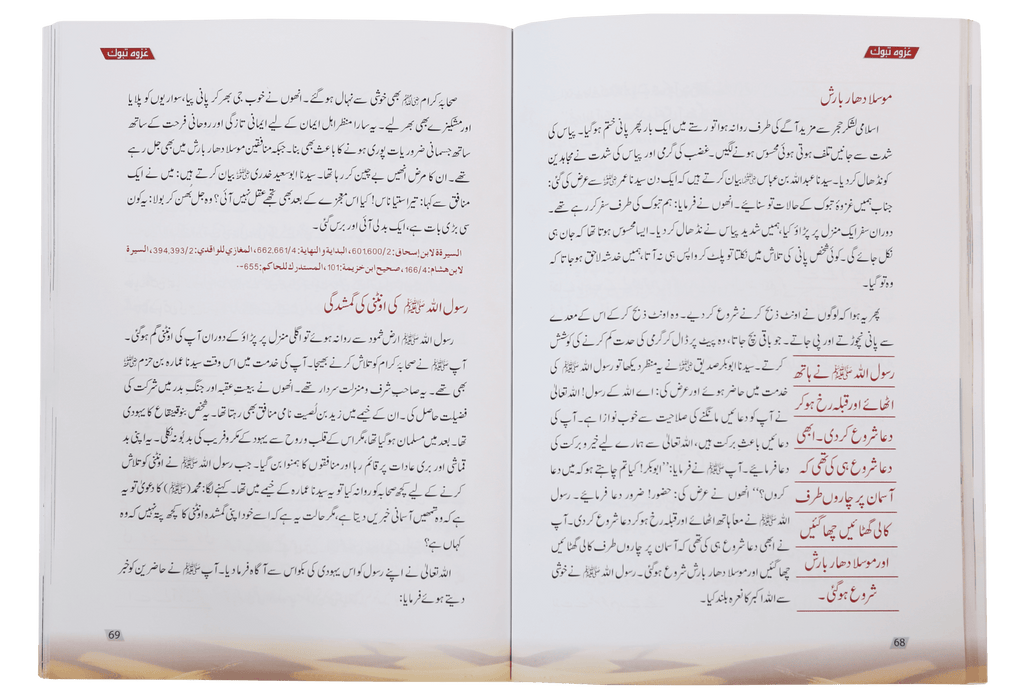 غزوہ تبوک
موسلا دھار بارش
اسلامی لشکر حجر سے مزید آگے کی طرف روانہ ہوا تو رستے میں ایک بار پھر پانی ختم ہو گیا۔ پیاس کی
شدت سے جانیں تلف ہوتی ہوئی محسوس ہونے لگیں۔ غضب کی گرمی اور پیاس کی شدت نے مجاہدین
کو نڈھال کر دیا۔ سیدنا عبداللہ بن عباس رضی اللہ عنہما بیان کرتے ہیں کہ ایک دن سیدنا عمر رضی اللہ عنہ سے عرض کی گئی:
جناب ہمیں غزوۂ تبوک کے حالات تو سنائیے۔ انھوں نے فرمایا: ہم تبوک کی طرف سفر کر رہے تھے۔
دوران سفر ایک منزل پر پڑاؤ کیا، ہمیں شدید پیاس نے نڈھال کر دیا۔ ایسا محسوس ہوتا تھا کہ جان ہی
نکل جائے گی۔ کوئی شخص پانی کی تلاش میں نکلتا تو پلٹ کر واپس ہی نہ آتا، ہمیں خدشہ لاحق ہو جاتا کہ
وہ تو گیا۔
پھر یہ ہوا کہ لوگوں نے اونٹ ذبح کرنے شروع کر دیے۔ وہ اونٹ ذبح کر کے اس کے معدے
سے پانی نچوڑتے اور پی جاتے۔ جو باقی بچ جاتا، وہ پیٹ پر ڈال کر گرمی کی حدت کم کرنے کی کوشش
کرتے۔ سیدنا ابوبکر صدیق رضی اللہ عنہ نے یہ منظر دیکھا تو رسول اللہ ﷺ کی
خدمت میں حاضر ہوئے اور عرض کی: اے اللہ کے رسول! اللہ تعالیٰ
نے آپ کو دعائیں مانگنے کی صلاحیت سے خوب نوازا ہے۔ آپ کی
دعائیں باعثِ برکت ہیں، اللہ تعالیٰ سے ہمارے لیے خیر و برکت کی
دعا فرمائیے۔ آپ ﷺ نے فرمایا: ”ابوبکر! کیا تم چاہتے ہو کہ میں دعا
کروں؟“ انھوں نے عرض کی: حضور! ضرور دعا فرمائیے۔ رسول
اللہ ﷺ نے معاً ہاتھ اٹھائے اور قبلہ رخ ہو کر دعا شروع کر دی۔ آپ
نے ابھی دعا شروع ہی کی تھی کہ آسمان پر چاروں طرف کالی گھٹائیں
چھا گئیں اور موسلا دھار بارش شروع ہو گئی۔ رسول اللہ ﷺ نے خوشی
سے اللہ اکبر کا نعرہ بلند کیا۔
رسول اللہ ﷺ نے ہاتھ
اٹھائے اور قبلہ رخ ہو کر
دعا شروع کر دی۔ ابھی
دعا شروع ہی کی تھی کہ
آسمان پر چاروں طرف
کالی گھٹائیں چھا گئیں
اور موسلا دھار بارش
شروع ہو گئی۔
68
غزوہ تبوک
صحابۂ کرام رضی اللہ عنہم بھی خوشی سے نہال ہو گئے۔ انھوں نے خوب جی بھر کر پانی پیا، سواریوں کو پلایا
اور مشکیزے بھی بھر لیے۔ یہ سارا منظر اہل ایمان کے لیے ایمانی تازگی اور روحانی فرحت کے ساتھ
ساتھ جسمانی ضروریات پوری ہونے کا باعث بھی بنا۔ جبکہ منافقین موسلا دھار بارش میں بھی جل رہے
تھے۔ ان کا مرض انھیں بے چین کر رہا تھا۔ سیدنا ابوسعید خدری رضی اللہ عنہ بیان کرتے ہیں: میں نے ایک
منافق سے کہا: تیرا ستیاناس! کیا اس معجزے کے بعد بھی تجھے عقل نہیں آئی؟ وہ جل بُھن کر بولا: یہ کون
سی بڑی بات ہے، ایک بدلی آئی اور برس گئی۔
السيرة لابن إسحاق: 601,600/2، البداية والنهاية: 662,661/4، المغازي للواقدي: 394,393/2، السيرة
لابن هشام: 166/4، صحيح ابن خزيمة: 101، المستدرك للحاكم: 655۔
رسول اللہ ﷺ کی اونٹنی کی گمشدگی
رسول اللہ ﷺ ارض ثمود سے روانہ ہوئے تو اگلی منزل پر پڑاؤ کے دوران آپ کی اونٹنی گم ہو گئی۔
آپ ﷺ نے صحابہ کرام کو تلاش کرنے بھیجا۔ آپ کی خدمت میں اس وقت سیدنا عمارہ بن حزم رضی اللہ عنہ
بھی تھے۔ یہ صاحب شرف و منزلت سردار تھے۔ انھوں نے بیعت عقبہ اور جنگ بدر میں شرکت کی
فضیلت حاصل کی۔ ان کے خیمے میں زید بن لُصیت نامی منافق بھی رہتا تھا۔ یہ شخص بنوقینقاع کا یہودی
تھا۔ بعد میں مسلمان ہو گیا تھا، مگر اس کے قلب و روح سے یہود کے مکر و فریب کی بدبو نہ نکلی۔ یہ اپنی بد
قماشی اور بری عادات پر قائم رہا اور منافقوں کا ہمنوا بن گیا۔ جب رسول اللہ ﷺ نے اونٹنی کو تلاش
کرنے کے لیے کچھ صحابہ کو روانہ کیا تو یہ سیدنا عمارہ کے خیمے میں تھا۔ کہنے لگا: محمد (ﷺ) کا دعویٰ تو یہ
ہے کہ وہ تمھیں آسمانی خبریں دیتا ہے، مگر حالت یہ ہے کہ اسے خود اپنی گمشدہ اونٹنی کا کچھ پتہ نہیں کہ وہ
کہاں ہے؟
اللہ تعالیٰ نے اپنے رسول کو اس یہودی کی بکواس سے آگاہ فرما دیا۔ آپ ﷺ نے حاضرین کو خبر
دیتے ہوئے فرمایا:
69